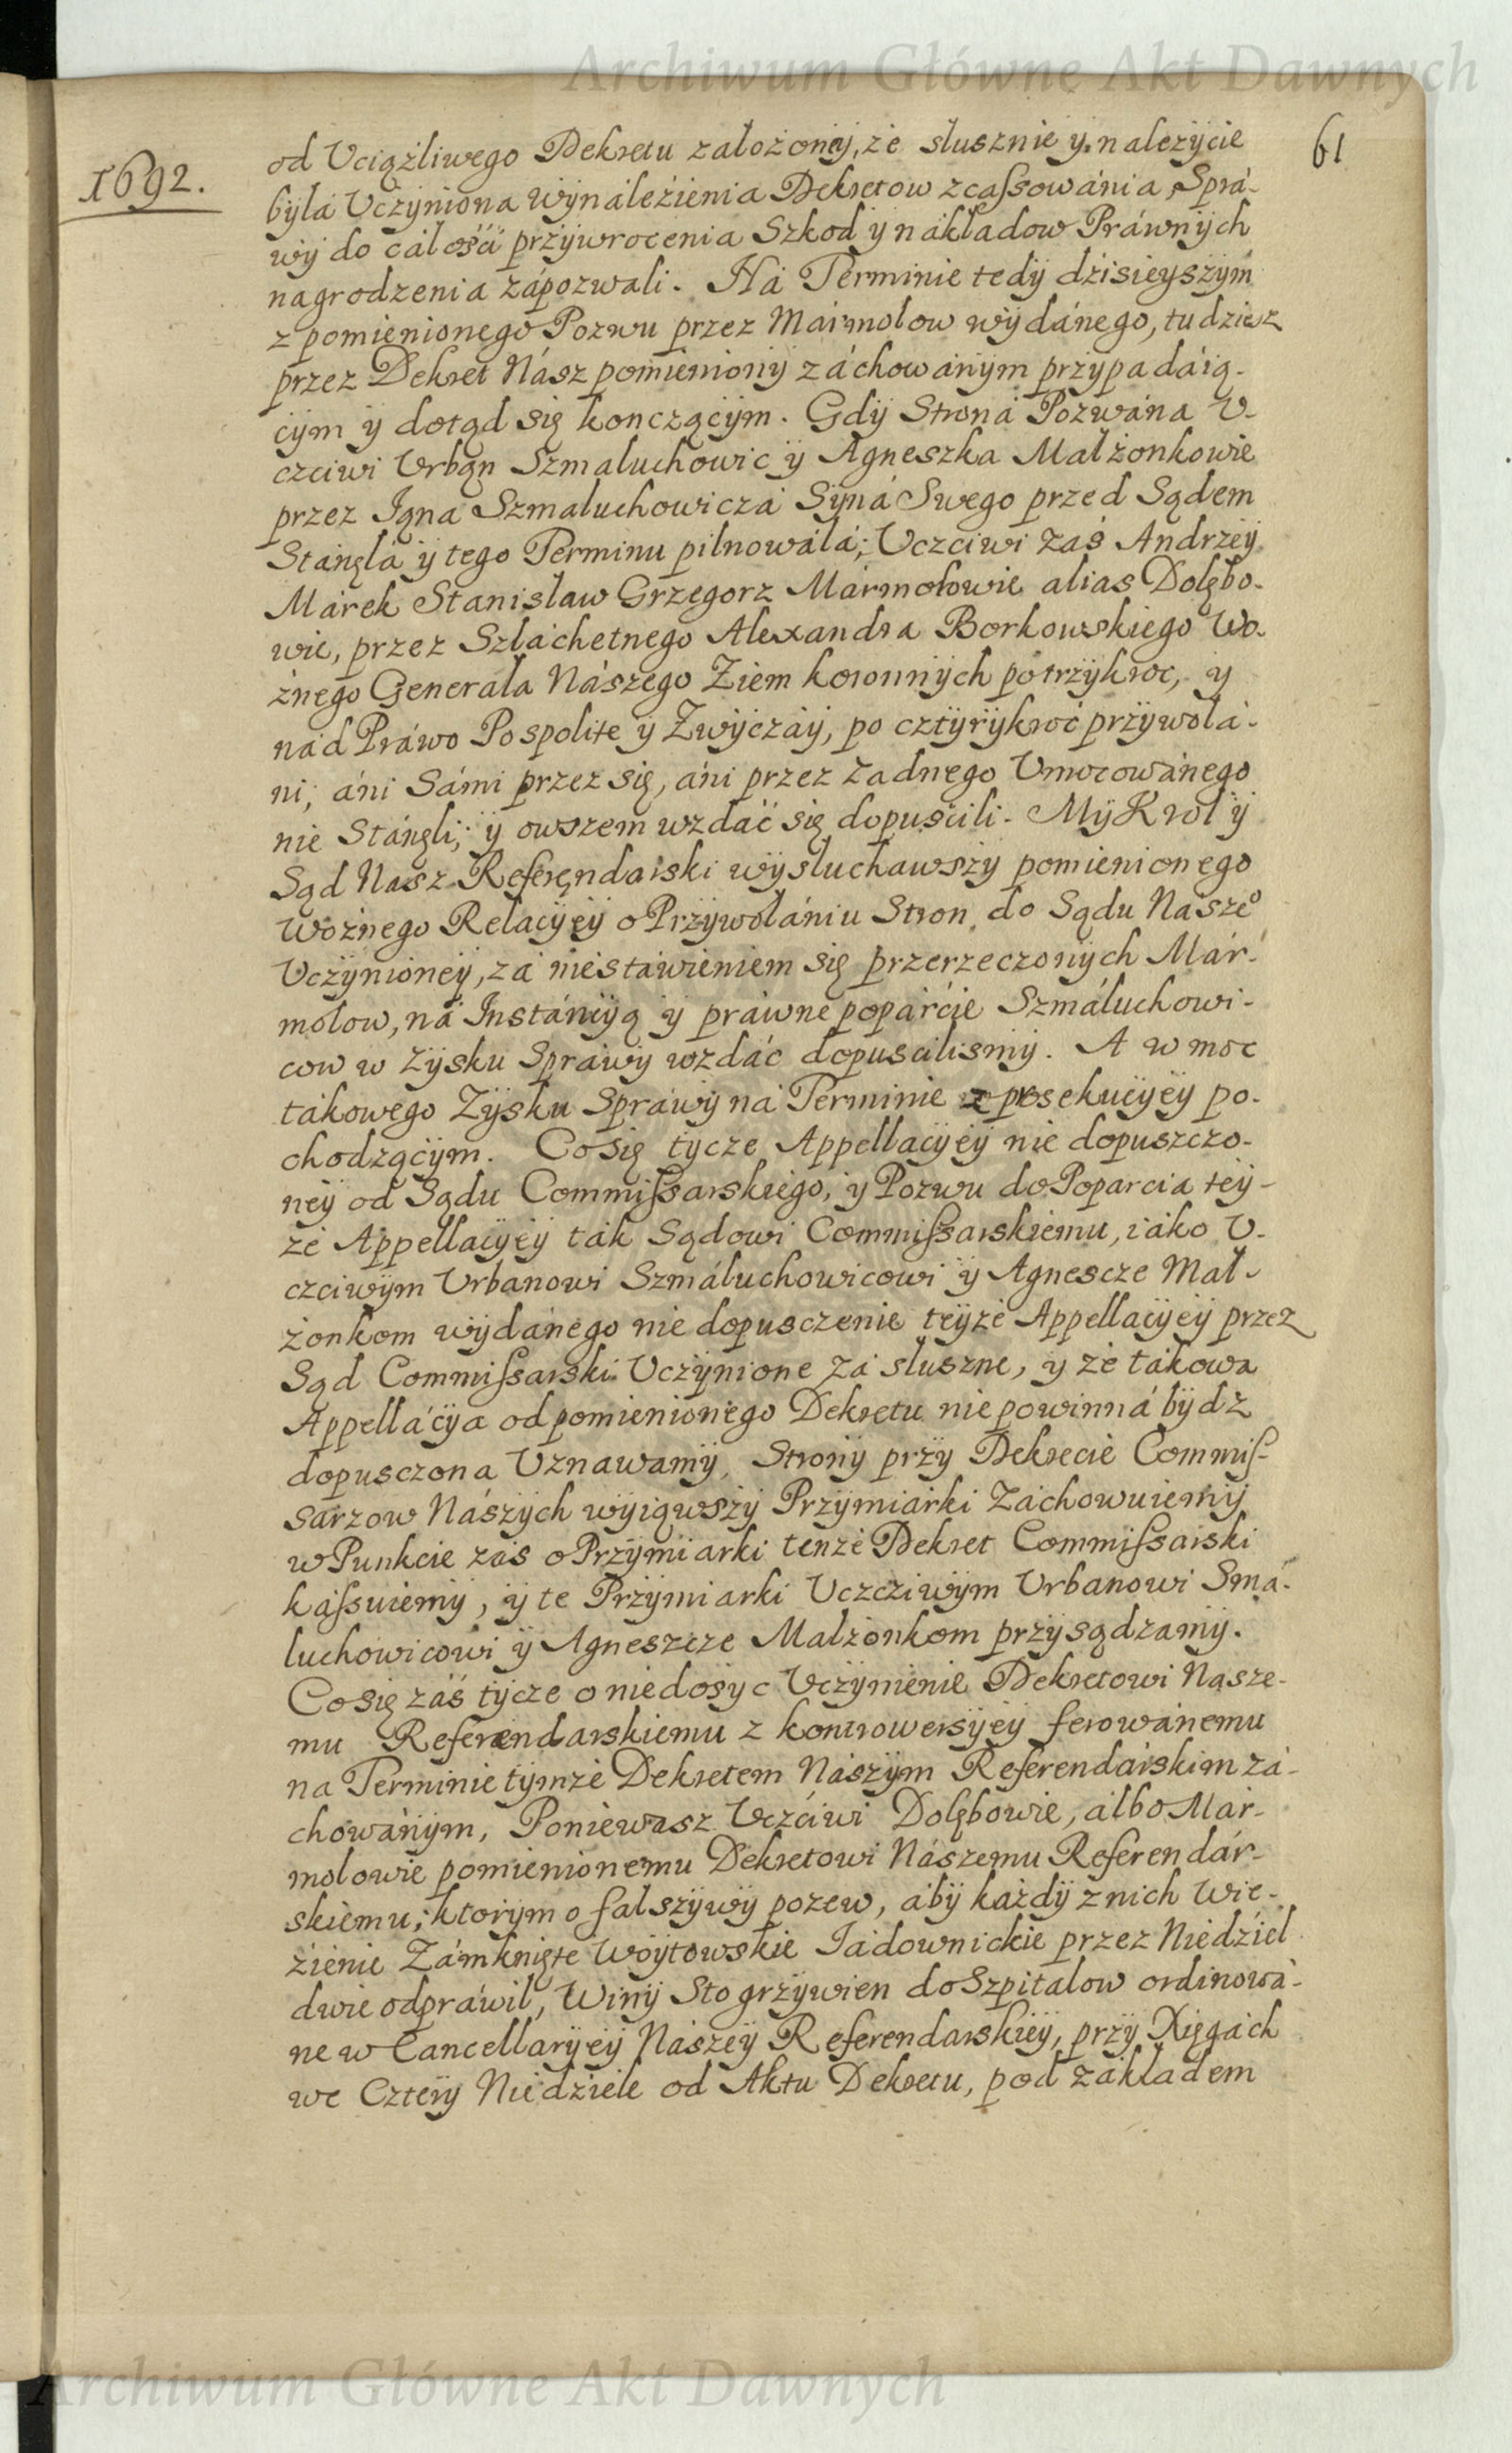 Archiwum Główne Akt Dawnych
61
1692.
od Uciążliwego Dekretu założonÿ, ze słusznie ÿ nalezÿcie
bÿła Uczÿniona wÿnaleźienia Dekretow zcaſsowánia, Sprá-
wÿ do całośći przÿwrocenia Szkod ÿ nákładow Práwnÿch
nagrodzenia zápozwali. Ná Terminie tedÿ dźisieÿszÿm
z pomienionego Pozwu przez Mármołow wÿdánego, tudziesz
przez Dekret Nász pomienionÿ záchowánÿm przÿpadáią-
cÿm ÿ dotąd się kończącÿm. Gdÿ Stroná Pozwána U-
czciwi Urbąn Szmaluchowic ÿ Agneszka Małżonkowie
przez Jąna Szmaluchowiczá Sÿná Swego przed Sądem
Stanęłá ÿ tego Terminu pilnowáłá; Uczciwi záś Andrzeÿ
Márek Stanisław Grzegorz Mármołowie alias Dołębo-
wie, przez Szláchetnego Alexandra Borkowskiego Wo-
źnego Generała Nászego Ziem koronnÿch potrzÿkroc, ÿ
nád Práwo Pospolite ÿ Zwÿczáÿ, po cztÿrÿkroć przÿwołá-
ni, áni Sámi przez się, áni przez żadnego Umocowánego
nie Stánęli, ÿ owszem wzdáć się dopuścili. Mÿ Krol ÿ
Sąd Nasz Referęndarski wÿsłuchawszÿ pomienionego
Woźnego Relacÿeÿ o Przÿwołániu Stron do Sądu Naszeº
Uczÿnioneÿ, zá niestáwieniem się przerzeczonÿch Már-
mołow, ná Instáncÿą ÿ práwne popárćie Szmáluchowi-
cow w Zÿsku Spráwÿ wzdáć dopuścilismÿ. A w moc
tákowego Zÿsku Spráwÿ ná Terminie z prosekucÿeÿ po-
chodzącÿm. Co się tÿcze Appellacÿeÿ nie dopuszczo-
neÿ od Sądu Commiſsarskiego, ÿ Pozwu do Poparcia teÿ-
że Appellacÿeÿ ták Sądowi Commiſsarskiemu, iáko U-
czciwÿm Urbanowi Szmáluchowicowi ÿ Agnescze Mał-
żonkom wÿdánego nie dopusczenie teÿże Appellacÿeÿ przez
Sąd Commiſsarski Uczÿnione zá słuszne, ÿ że tákowa
Appellácÿa od pomienionego Dekretu nie powinná bÿdź
dopusczona Uznawamÿ, Stronÿ przÿ Dekrecie Commiſ-
sarzow Nászÿch wÿiąwszÿ Przÿmiarki Záchowuiemÿ
w Punkcie zás o Przÿmiarki tenże Dekret Commiſsarski
káſsuiemÿ, ÿ te Przÿmiarki Uczcziwÿm Urbanowi Smá-
luchowicowi ÿ Agneszcze Małżonkom przÿsądzamÿ.
Co się záś tÿcze o niedosÿc Uczÿnienie Dekretowi Nasze-
mu Referendarskiemu z kontrowersÿeÿ ferowánemu
na Terminie tÿmże Dekretem Nászÿm Referendárskim zá-
chowánÿm, Poniewasz Uczćiwi Dołębowie, álbo Már-
mołowie pomienionemu Dekretowi Nászemu Referendár-
skiemu; ktorÿm o fałszÿwÿ pozew, ábÿ káżdÿ z nich Wię-
zienie Zámknięte Woÿtowskie Jádownickie przez Niedźiel
dwie odpráwił, Winÿ Sto grzÿwien do Szpitalow ordinowá-
ne w Cancellarÿeÿ Nászeÿ Referendarskieÿ, przÿ Xięgách
we Czterÿ Niedźiele od Aktu Dekretu, pod zákładem
Archiwum Główne Akt Dawnych